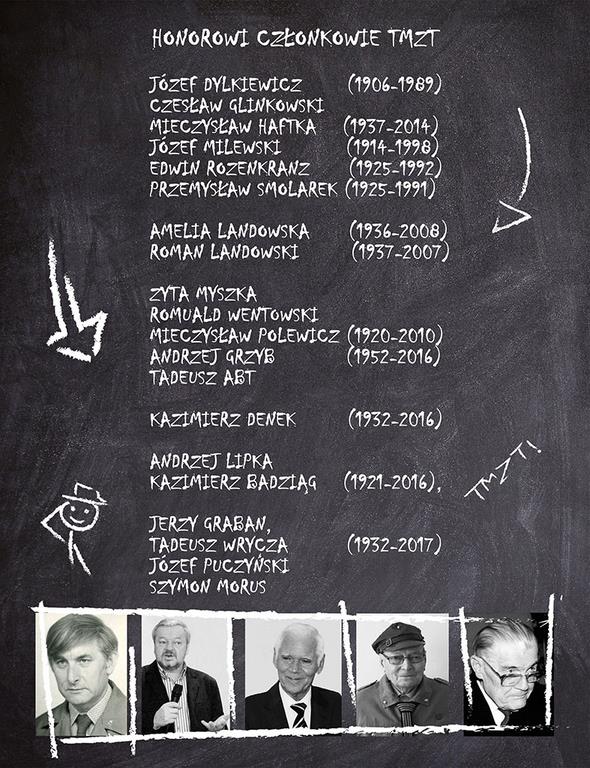 HONOROWI CZŁONKOWIE TMZT
JÓZEF DYLKIEWICZ (1906-1989)
CZESŁAW GLINKOWSKI
MIECZYSŁAW HAFTKA (1937-2014)
JÓZEF MILEWSKI (1914-1998)
EDWIN ROZENKRANZ (1925-1992)
PRZEMYSŁAW SMOLAREK (1925-1991)
AMELIA LANDOWSKA (1936-2008)
ROMAN LANDOWSKI (1937-2007)
ZYTA MYSZKA
ROMUALD WENTOWSKI
MIECZYSŁAW POLEWICZ (1920-2010)
ANDRZEJ GRZYB (1952-2016)
TADEUSZ ABT
KAZIMIERZ DENEK (1932-2016)
ANDRZEJ LIPKA
KAZIMIERZ BADZIĄG (1921-2016),
TMZT!
JERZY GRABAN,
TADEUSZ WRYCZA (1932-2017)
JÓZEF PUCZYŃSKI
SZYMON MORUS